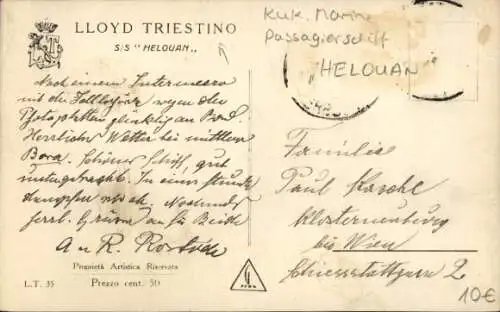 LLOYD TRIESTINO
S/S "HELOUAN"
K.u.k. Marine
Passagierschiff
"HELOUAN"
Nach einem Intermezzo
mit der wegen der
Photoplatten glücklich an Bord.
Herrliches Wetter bei mittlerer
Bora. Schönes Schiff, gut
untergebracht. In einer Stunde
dampfen wir ab. Nochmals
herzl. Grüsse an Sie Beide
A u R.
Familie
Paul
Klosterneuburg
bei Wien
Schiessstattgasse 2
Proprietà Artistica Riservata
L.T. 35 Prezzo cent. 50
10€